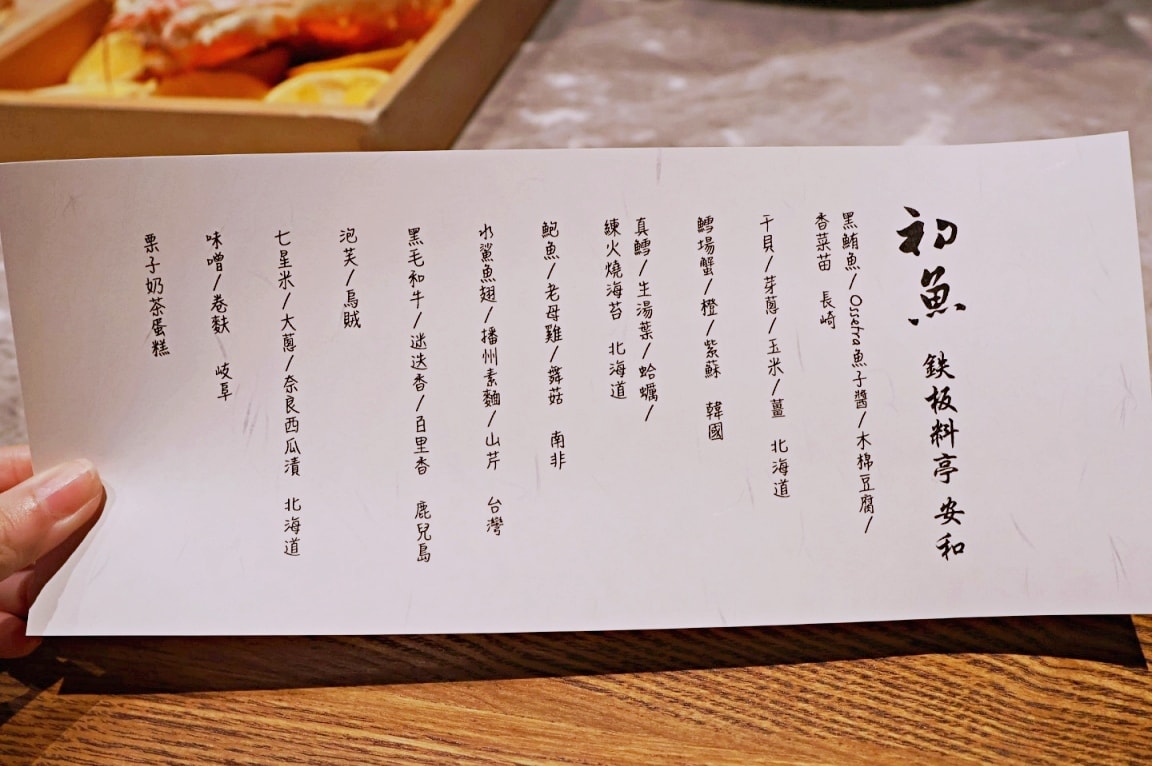 初魚 鉄板料亭 安和
黑鮪魚/Ossetra魚子醬/木棉豆腐/
香菜苗 長崎
干貝/芽蔥/玉米/薑 北海道
鱈場蟹/橙/紫蘇 韓國
真鱈/生湯葉/蛤蠣/
練火燒海苔 北海道
鮑魚/老母雞/舞菇 南非
水鯊魚翅/播州素麵/山芹 台灣
黑毛和牛/迷迭香/百里香 鹿兒島
泡芙/烏賊
七星米/大蔥/奈良西瓜漬 北海道
味噌/卷麩 岐阜
栗子奶茶蛋糕